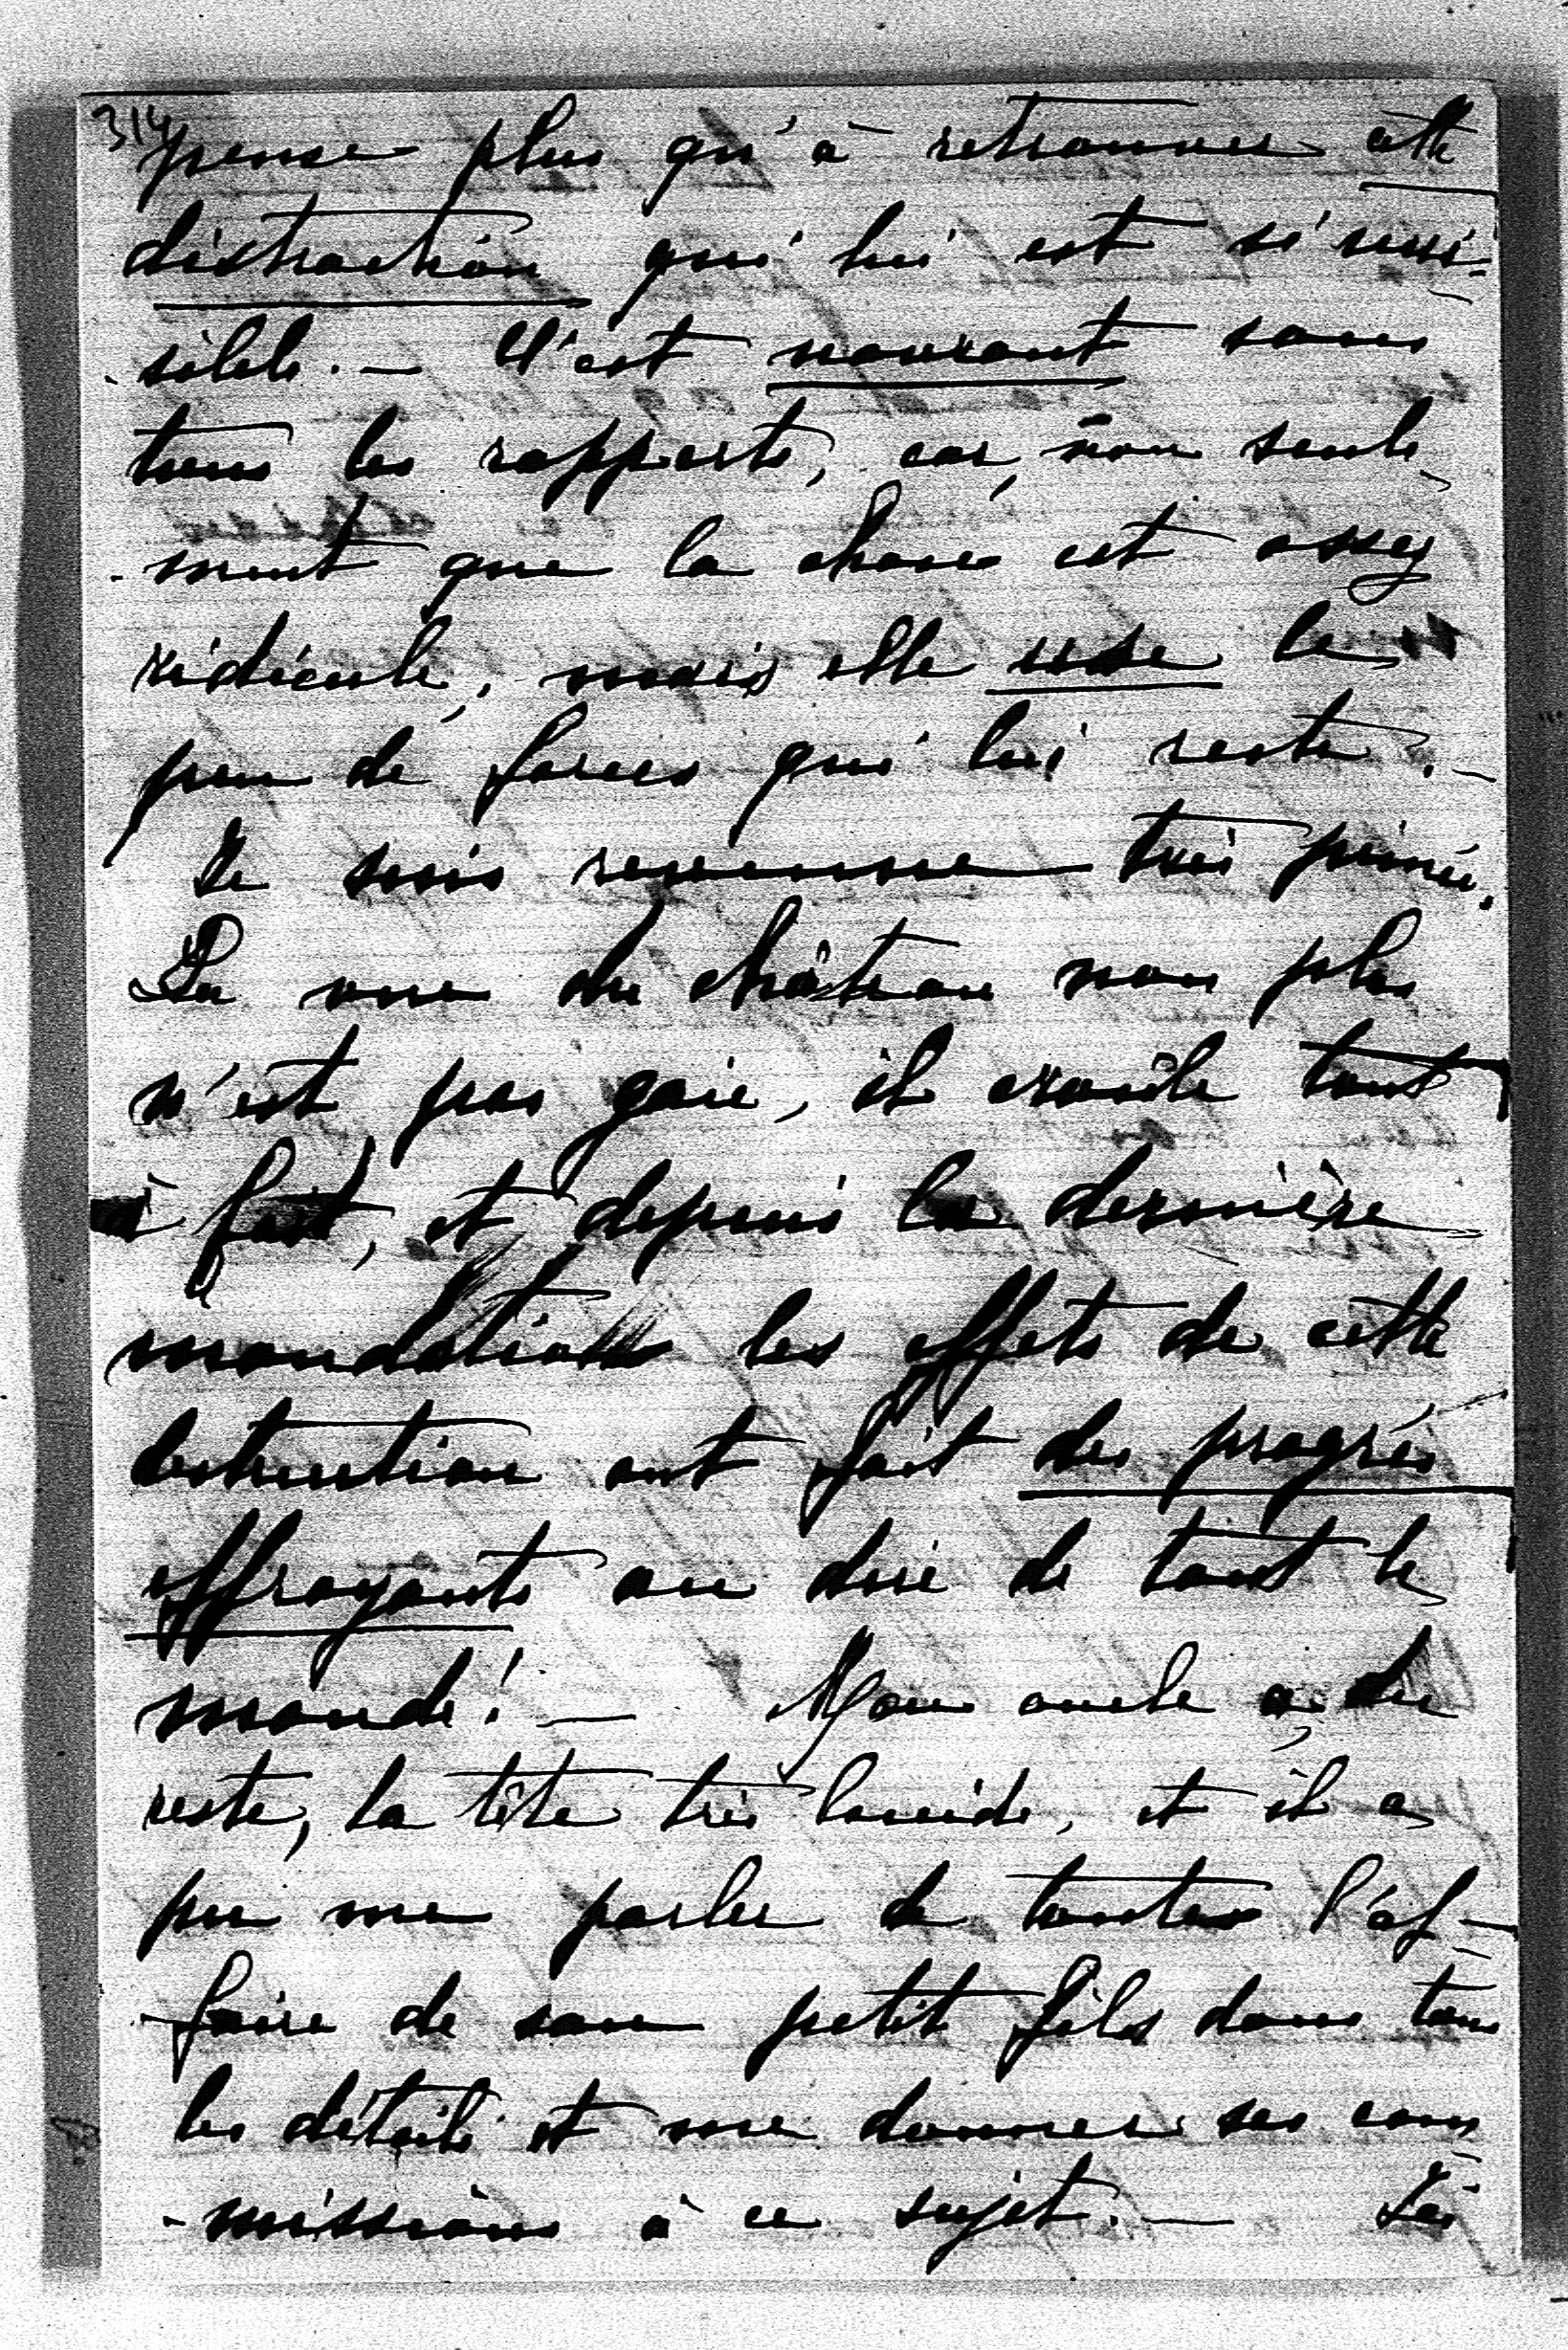 314
pense plus qu'à retrouver cette
distraction qui lui est si nui-
-sible. — C'est navrant sous
tous les rapports, car, non seule-
-ment que la chose est assez
ridicule, mais elle use le
peu de forces qui lui reste. —
Je suis revenue très peinée.
La vue du château non plus
n'est pas gaie, il croule tout
à fait, et depuis la dernière
inondation les effets de cette
destruction ont fait des progrès
effrayants au dire de tout le
monde! — Mon oncle a, du
reste, la tête très lucide, et il a
pu me parler de toute l'af-
-faire de son petit fils dans tous
les détails et me donner ses com-
-missions à ce sujet. — J'ai